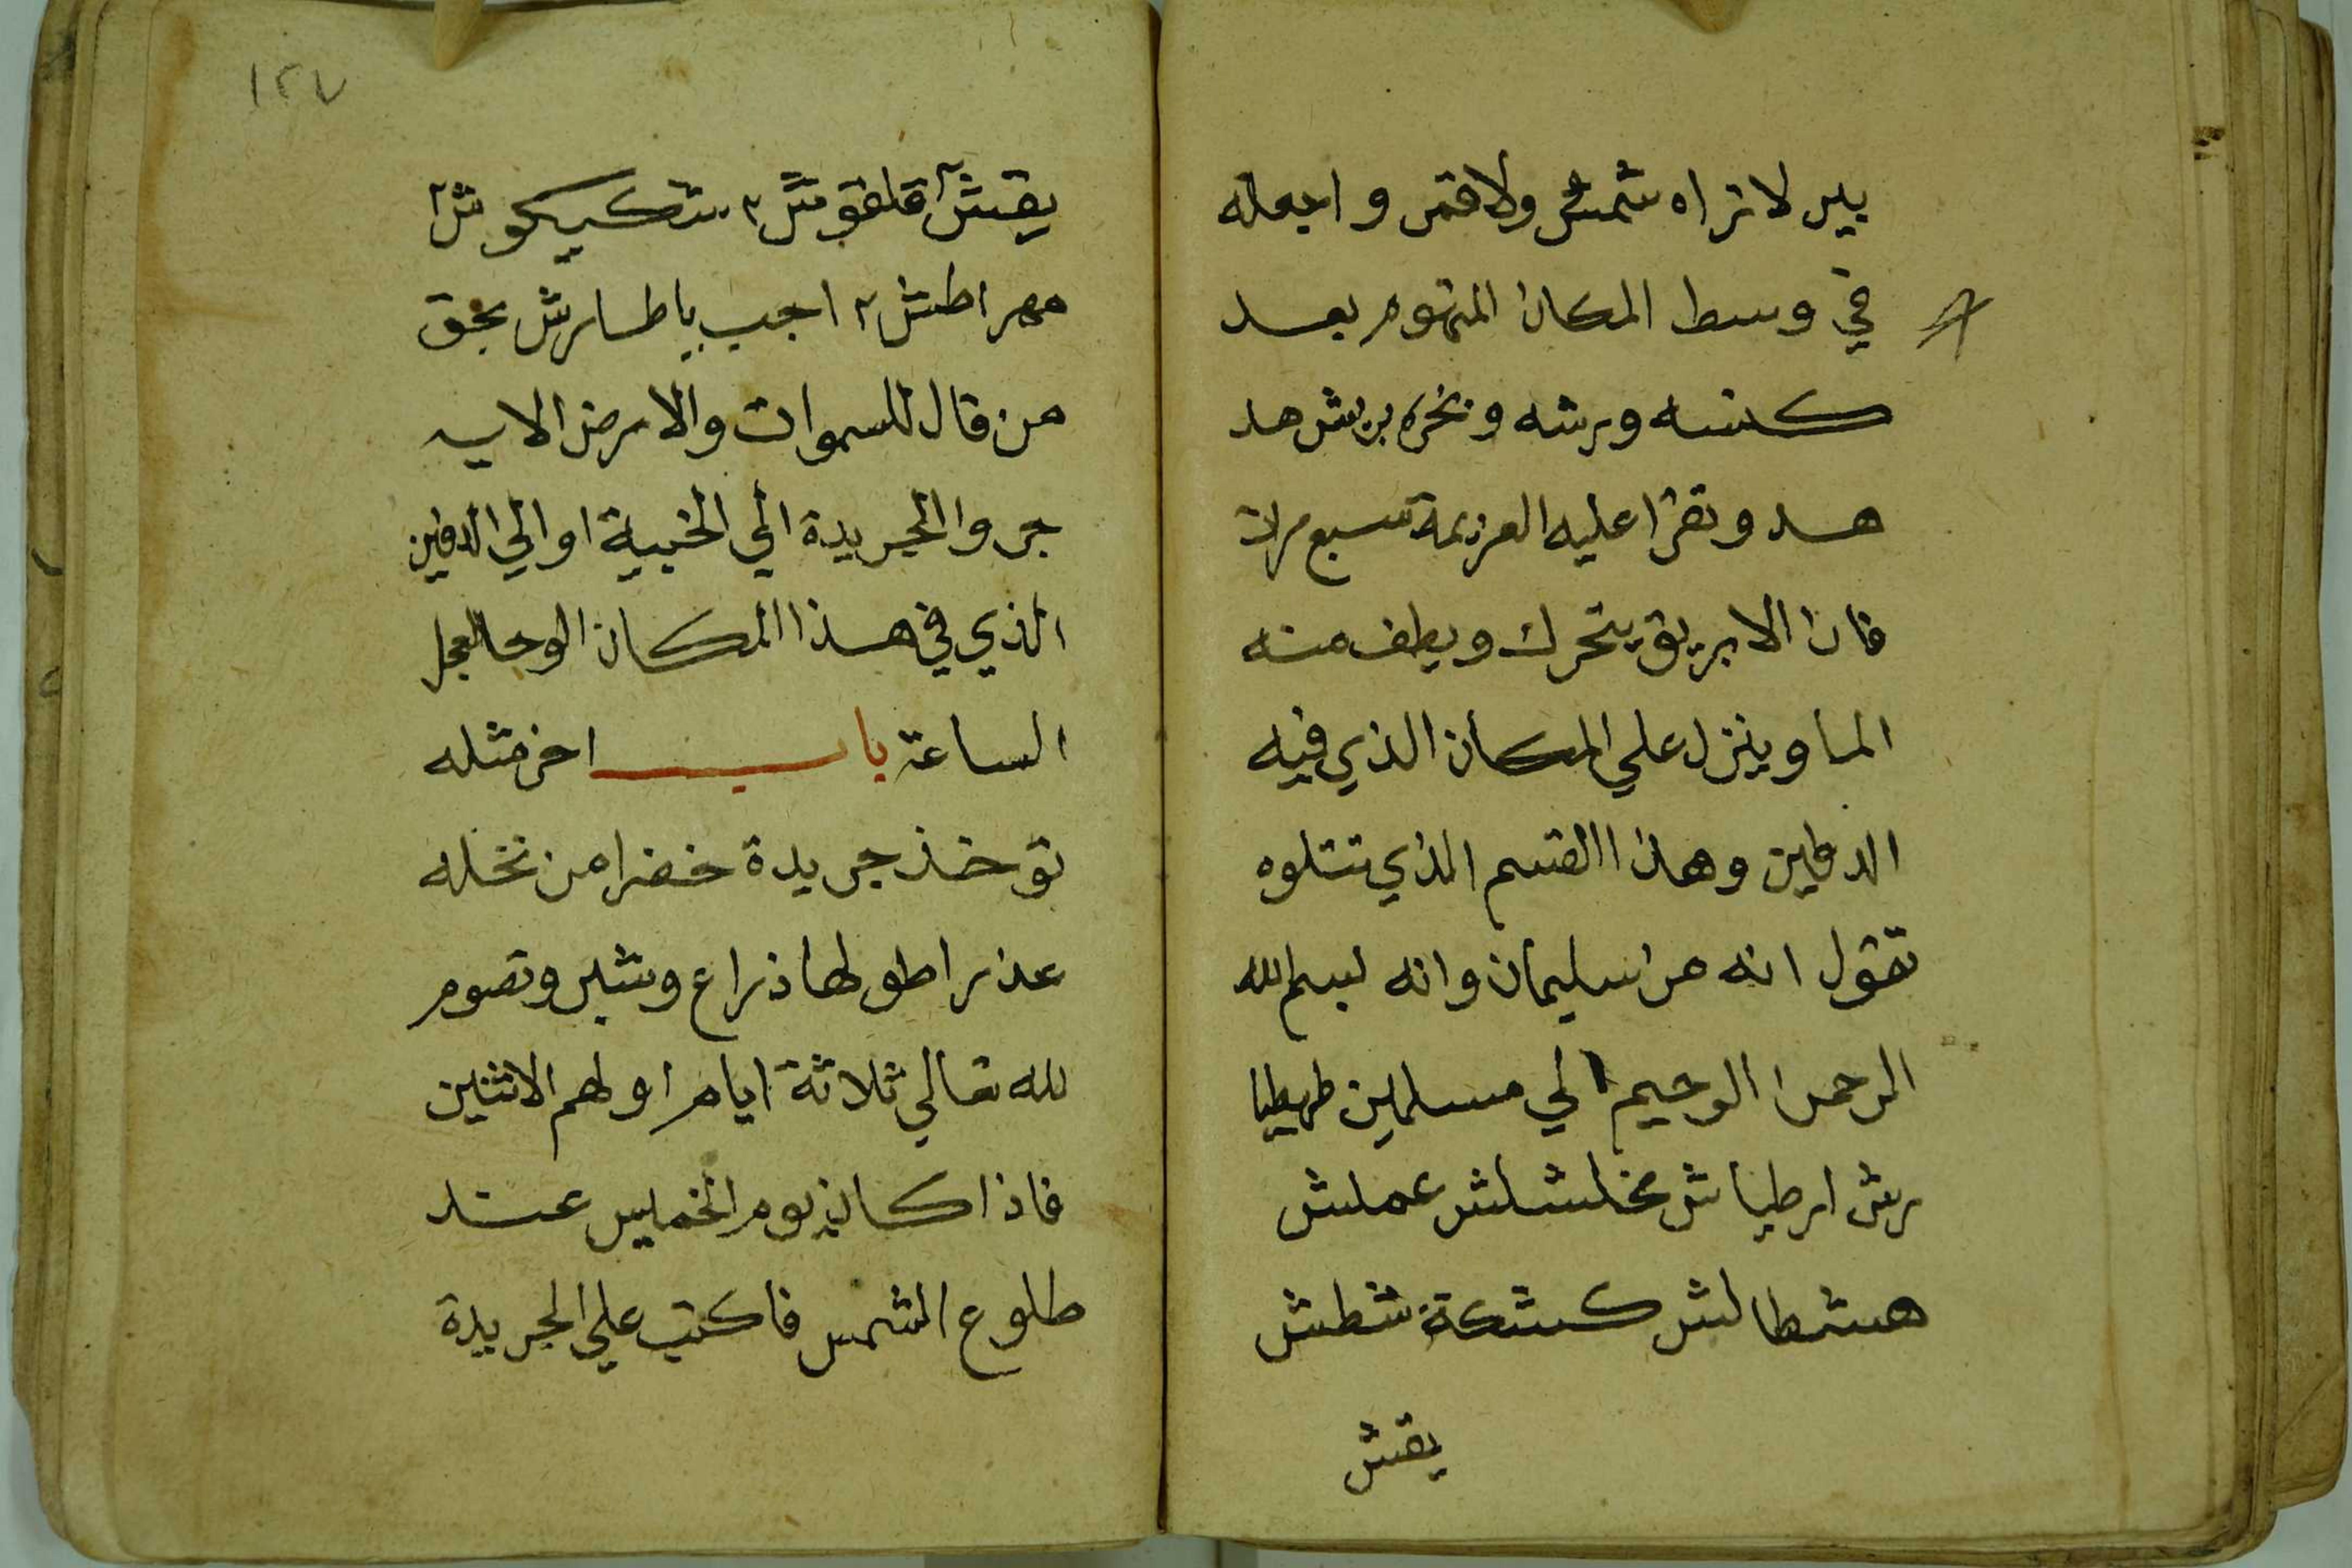 بير لا تراه شمش ولا قمر واجعله
في وسط المكان المتهوم بعد
كنسه ورشه وبخره بريش هد
هد وتقرا عليه العزيمة سبع مرات
فان الابريق يتحرك ويطف منه
الما وينزل علي المكان الذي فيه
الدفين وهذا القسم الذي تتلوه
تقول انه من سليمان وانه لبسم الله
الرحمن الرحيم الي مسلمين طهيطيا
رش ارطياش مخلشلش عملش
هشطالش كشكة شطش
يقش
١٢٧
يقش٢ قلقوش٢ شكيكوش٢
مهراطش٢ اجب ياطارش بحق
من قال للسموات والارض الايه
جروا الجريدة الي الخبية او الي الدفين
الذي في هذا المكان الوحا العجل
الساعة باب اخر مثله
توخذ جريدة خضرا من نخله
عذرا طولها ذراع وشبر وتصوم
لله تعالي ثلاثة ايام اولهم الاثنين
فاذا كان يوم الخميس عند
طلوع الشمس فاكتب علي الجريدة